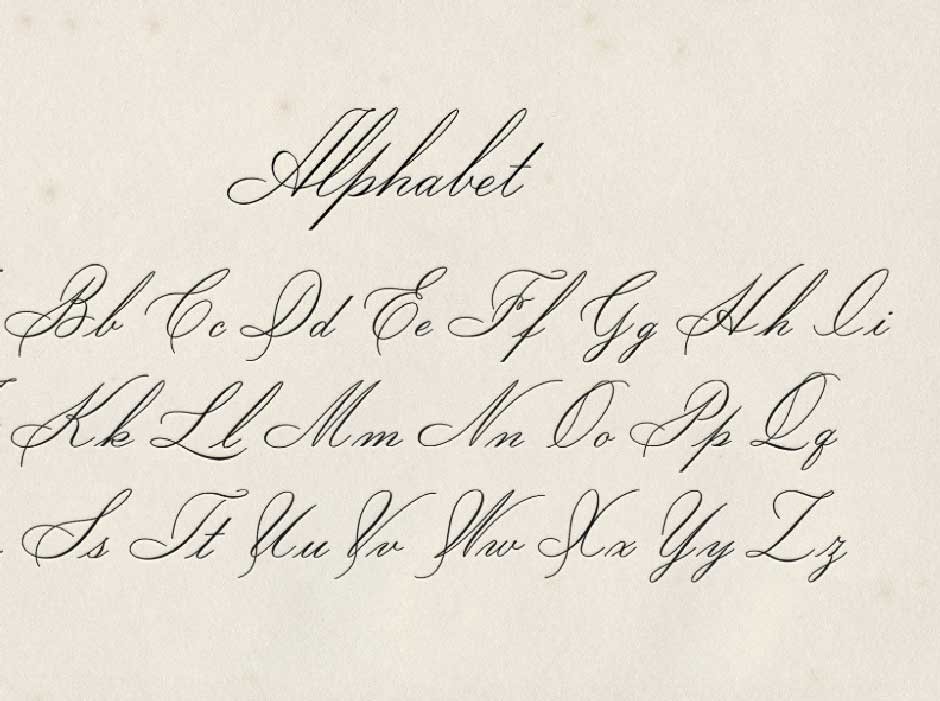 Alphabet
Bb Cc Dd Ee Ff Gg Hh Ii
Kk Ll Mm Nn Oo Pp Qq
Ss Tt Uu Vv Ww Xx Yy Zz